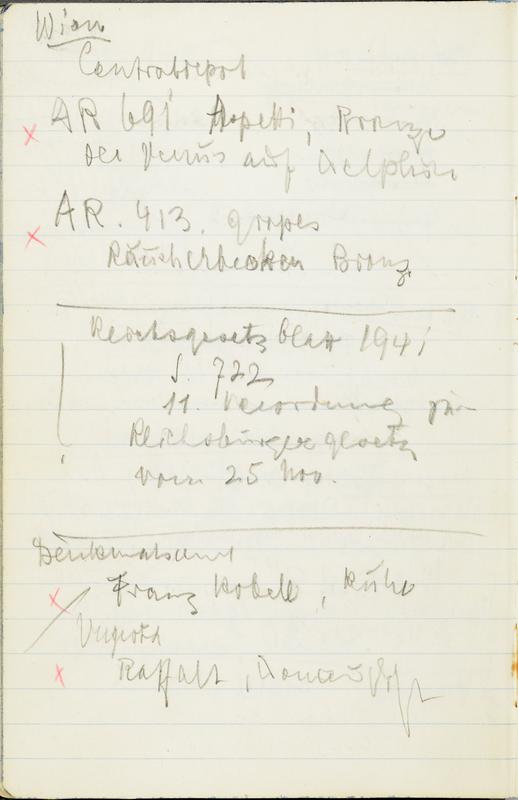 Wien
Centraldepot
AR 691 Aspetti, Bronze
der Venus auf Delphin
AR. 413. großes
Räucherbecken Bronz.
Reichsgesetzblatt 1941
S. 722
11. Verordnung zum
Reichsbürgergesetz
vom 25 Nov.
Denkmalsamt
Franz Kobell, Kühe
Raffalt, Donau